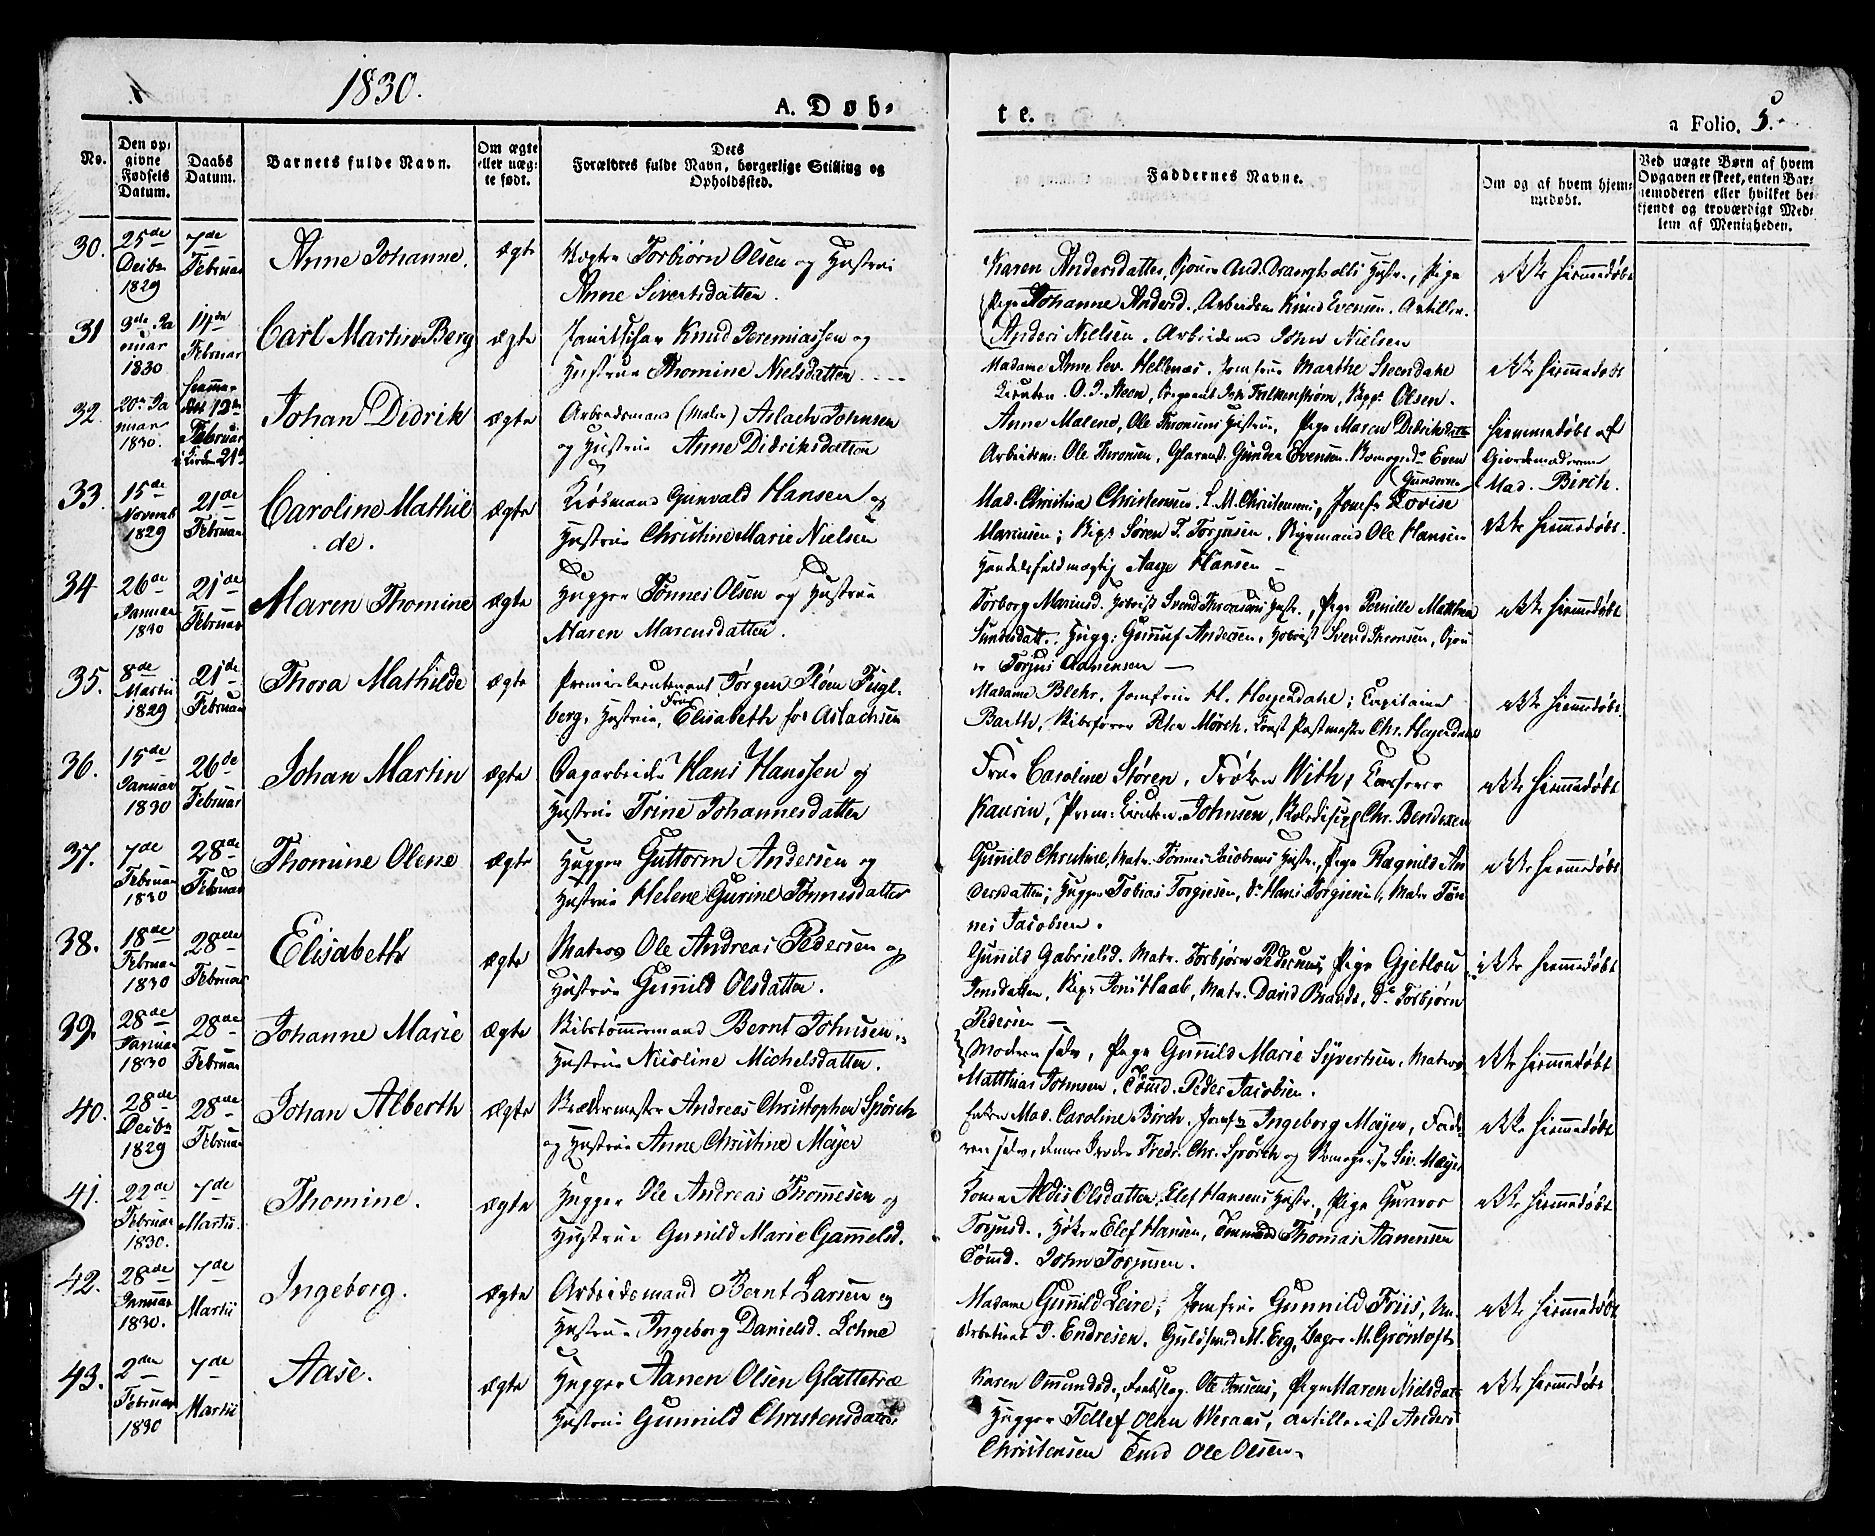 1830.
A. Døb-
te.
a Folio. 5.
No.
Den op-
givne
Fødsels
Datum.
Daabs
Datum.
Barnets fulde Navn.
Om ægte
eller uæg-
te født.
Dets
Forældres fulde Navn, borgerlige Stilling og
Opholdssted.
Faddernes Navne.
Om og af hvem hjem-
medøbt.
Ved uægte Børn af hvem
Opgaven er skeet, enten Bar-
nemoderen eller hvilket be-
kjendt og troværdigt Med-
lem af Menigheden.
30.
25de
Decbr
1829
7de
Februar
Anne Johanne.
ægte
Torbiørn Olsen og Hustrue
Anne Sivertsdatter.
Karen Andersdatter, Hustr., Pige
Pige Johanne Andersd. Arbeidsm Knud Evensen. Artiller.
Anders Nielsen. Arbeidsm John Nielsen
ikke hiemmedøbt
31
3de Ja
nuar
1830
14de
Februar
Carl Martin Berg
ægte
Knud Jeremiassen og
Hustrue Thomine Nielsdatter
Madame Anne Sev. Hellenæs. Jomfrue Marthe Steensdahl
O. J. Steen, Falkenstrøm, Olsen.
ikke hiemmedøbt
32.
20de Ja
nuar
1830.
hiemme-
døbt 13de
Februar
i Kirken 21de
Johan Didrik
ægte
Arbeidsmand (Maler) Aslach Johnsen
og Hustrue Anne Didriksdatter
Anne Malene, Ole Thronsens Hustrue, Pige Maren Didriksdatter
Arbeidsm: Ole Thronsen, Gunder Evensen. Even
Gundersen
hiemmedøbt af
Giordemoderen
Mad. Birch.
33.
15de
Novemb
1829
21de
Februar
Caroline Mathil
de.
ægte
Kiøbmand Gunvald Hansen og
Hustrue Christine Marie Nielsen
Mad. Christina Christensen. Jomfr Lovise
Mariusen; Søren T. Torjusen. Ole Hansen
Handelsfuldmægtig Aage Hansen
ikke hiemmedøbt.
34
26de
Januar
1830
21de
Februar
Maren Thomine
ægte
Hugger Tønnes Olsen og Hustrue
Maren Marcusdatter.
Torborg Mariusd. Svend Thronsens Hustr., Pige Pernille Mathea
Svendsdatt. Hugg: Gunnuf Andersen, Svend Thronsen,
Torjus Aanensen
ikke hiemmedøbt
35.
8de
Martii
1829
21de
Februar
Thora Mathilde
ægte
Premierlieutenant Jørgen Fugl-
berg, Hustrue, Frue Elisabeth for Aslachsen
Madame Blehr, Jomfrue H. Høyerdahl; Capitaine
Barth, Skibsfører Peter Mørch. Postmester Chr. Høyerdahl
ikke hiemmedøbt.
36.
15de
Januar
1830
26de
Februar
Johan Martin
ægte
Dagarbeider Hans Hanssen og
Hustrue Trine Johannesdatter
Frue Caroline Støren, Frøken With,
Kaurin, Prem: Lieuten. Johnsen, Chr. Bendixen
ikke hiemmedøbt
37.
7de
Februar
1830
28de
Februar
Thomine Olene
ægte
Hugger Guttorm Andersen og
Hustrue Helene Gurine Tønnesdatter
Gunild Christine, Matr. Tønnes Jacobsens Hustr., Pige Ragnild An
dersdatter; Hugger Tobias Torgiesen, Do Hans Torgiesen, Matr Tøn
nes Jacobsen.
ikke hiemmedøbt
38.
18de
Februar
1830
28de
Februar
Elisabeth
ægte
Matros Ole Andreas Pedersen og
Hustrue Gunild Olsdatter.
Gunild Gabrielsd. Matr. Torbjørn Pedersens, Pige Gjetlou
Jensdatter, Jens Haab, Matr. David Brands, Do Torbjørn
Pedersen
ikke hiemmedøbt
39.
28de
Januar
1830
28de
Februar
Johanne Marie
ægte
Skibstømmermand Bernt Johnsen
Hustrue Nicoline Michelsdatter.
Moderen selv, Pige Gunild Marie Syvertsen, Matros
Matthias Johnsen. Tømd. Peder Jacobsen.
ikke hiemmedøbt
40.
28de
Decbr
1829
28de
Februar
Johan Alberth
ægte
Andreas Christopher Spørck
og Hustrue Anne Christine Mayer
Enken Mad. Caroline Birch. Jomfr Ingeborg Mayer, Fade-
ren selv, dennes Broder Fredr. Chr. Spørck og Siv. Mayer
ikke hiemmedøbt
41.
22de
Februar
1830.
7de
Martii.
Thomine.
ægte
Hugger Ole Andreas Thomesen og
Hustrue Gunild Marie Gammelsd.
Konen Aldis Olsdatter. Elef Hansens Hustr., Pige Guroe
Torjusd. Høker Elef Hansen, Thomas Aanensen
Tømd. John Torjusen.
ikke hiemmedøbt
42.
28de
Januar
1830.
7de
Martii
Ingeborg.
ægte
Arbeidsmand Bernt Larsen og
Hustrue Ingeborg Danielsd. Lohne
Madame Gunild Leire, Jomfrue Gunnild Friis,
J. Endresen. Guldsmed M. Eeg, Bager M. Grøntoft
ikke hiemmedøbt
43.
2den
Februar
1830
7de
Martii
Aase.
ægte
Hugger Aanen Olsen Glattetræ
Hustrue Gunnild Christensdatter
Karen Omundsd., Ole Jensens, Pige Maren Nielsdatt
Hugger Tellef Olsen Weraas, artillerist Anders
Christensen Tmd Ole Olsen.
ikke hiemmedøbt